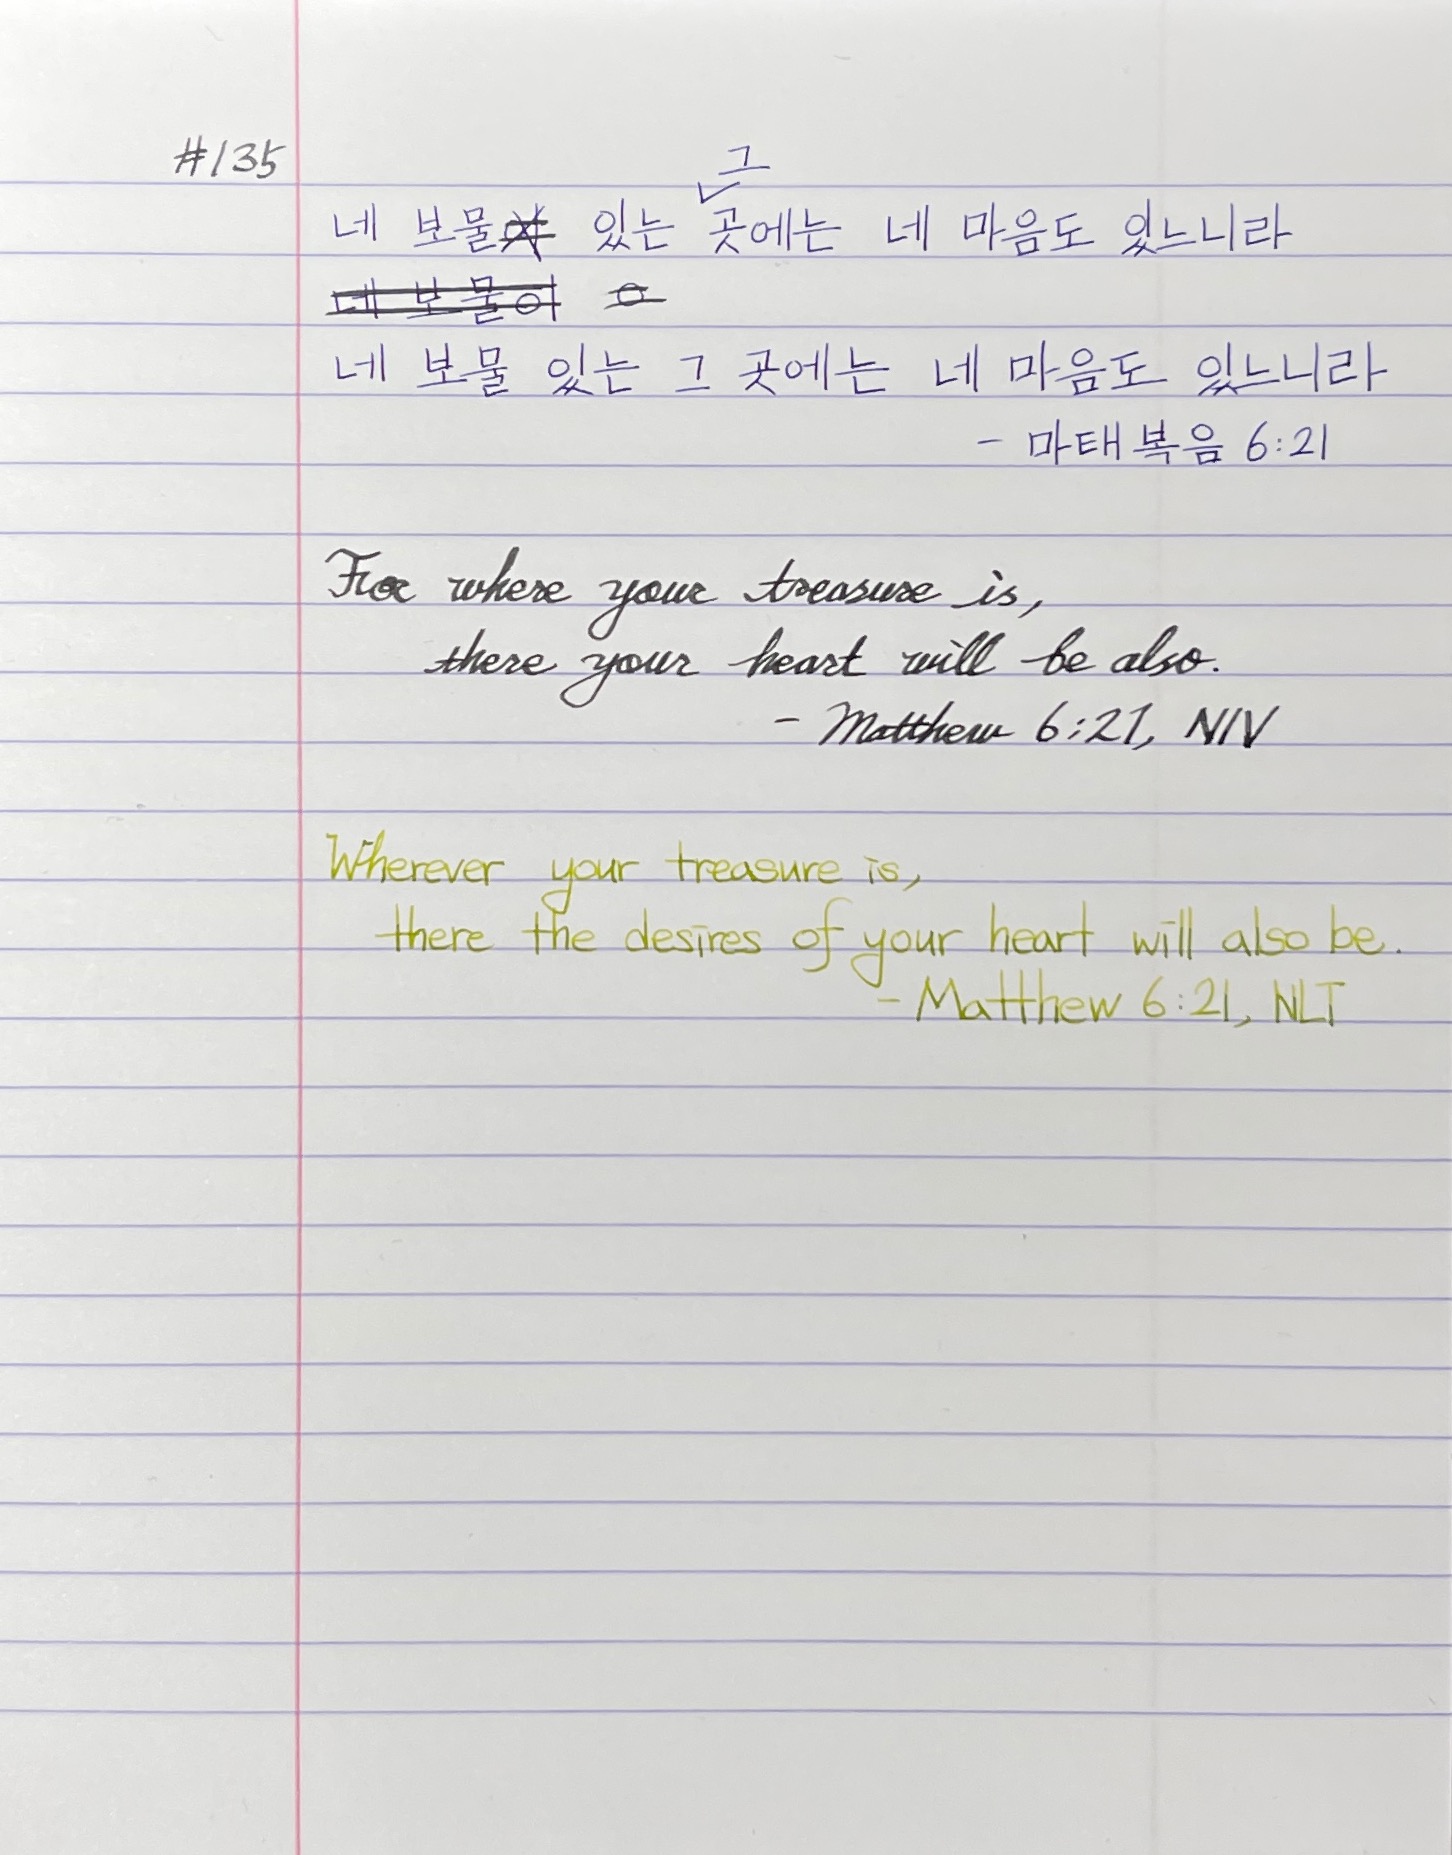 #135
그
네 보물 있는 곳에는 네 마음도 있느니라
네 보물이 ㅇ
네 보물 있는 그 곳에는 네 마음도 있느니라
- 마태복음 6:21
For where your treasure is,
there your heart will be also.
- Matthew 6:21, NIV
Wherever your treasure is,
there the desires of your heart will also be.
- Matthew 6:21, NLT